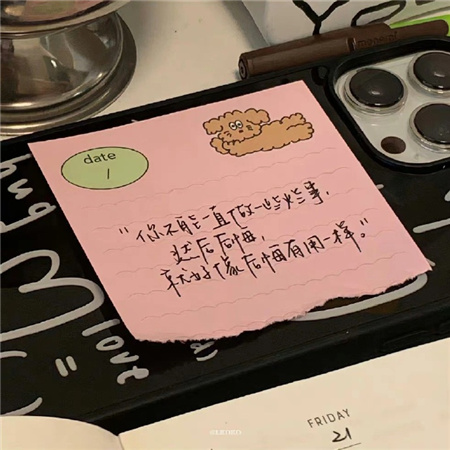 date
/
“你不能一直做一些烂事,
然后后悔,
就好像后悔有用一样。”
hug
=
love
FRIDAY
21